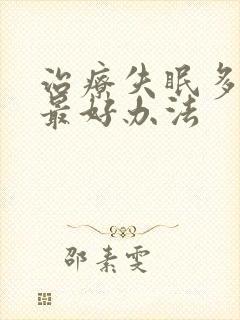 治疗失眠多
最好办法
邵素雯